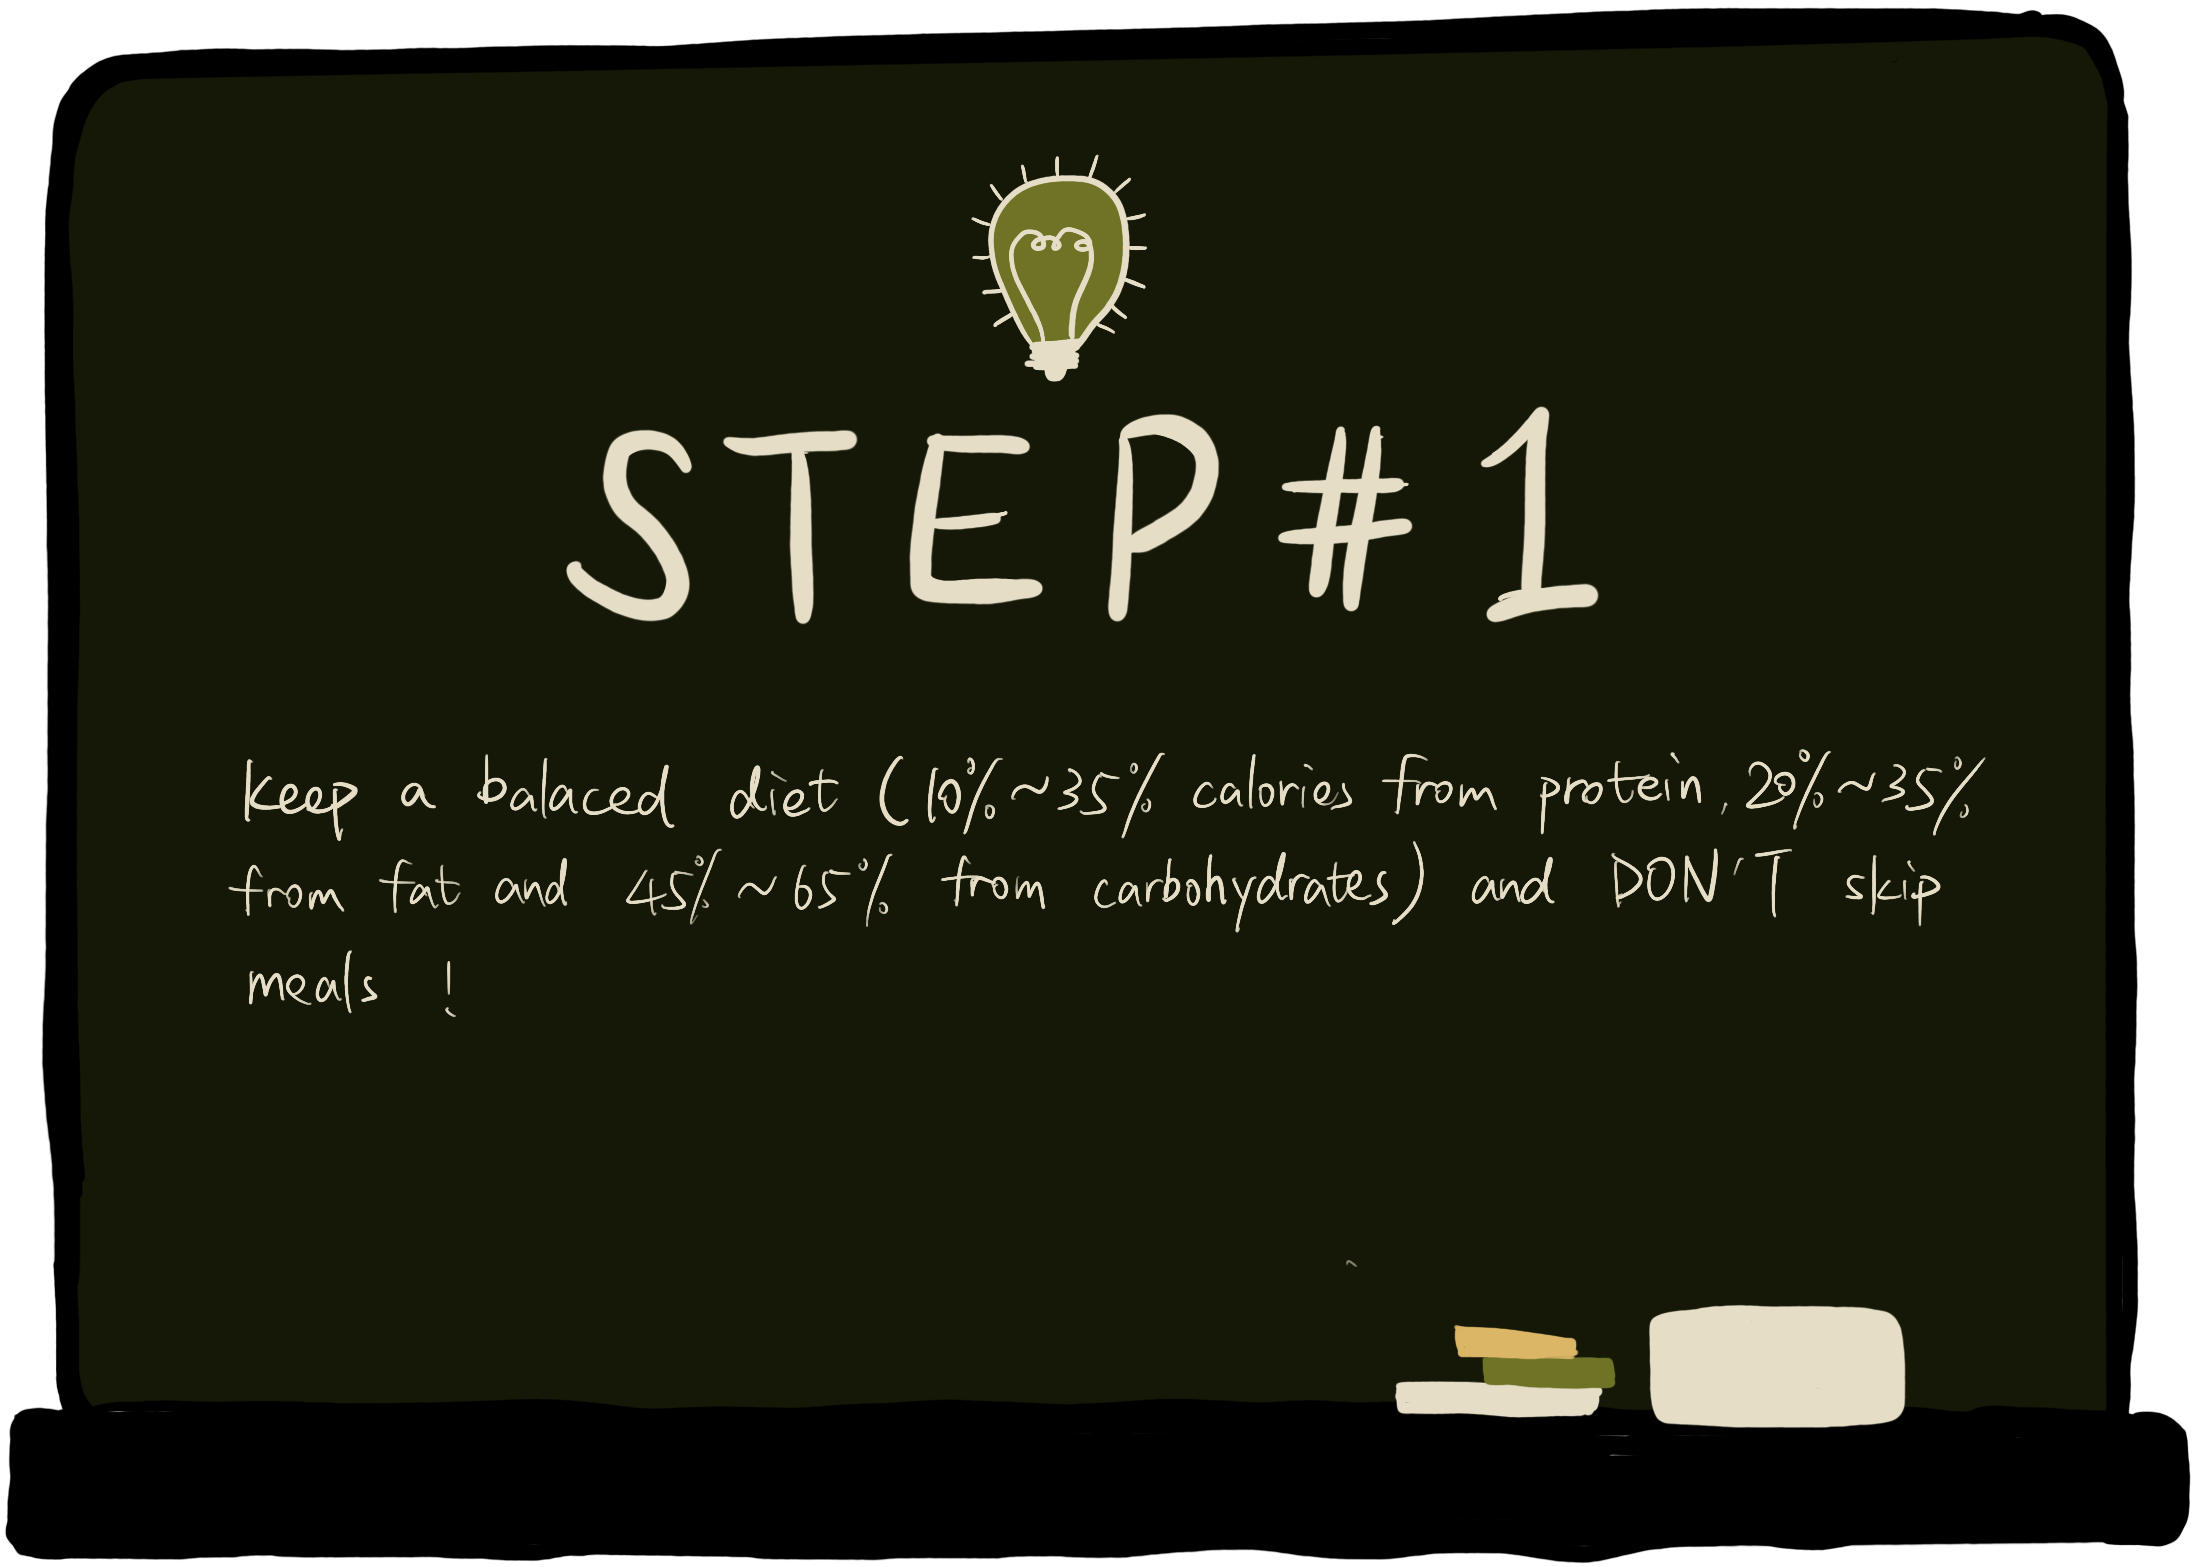 STEP#1
Keep a balaced diet (10%~35% calories from protein, 20%~35%
from fat and 45%~65% from carbohydrates) and DON'T skip
meals !